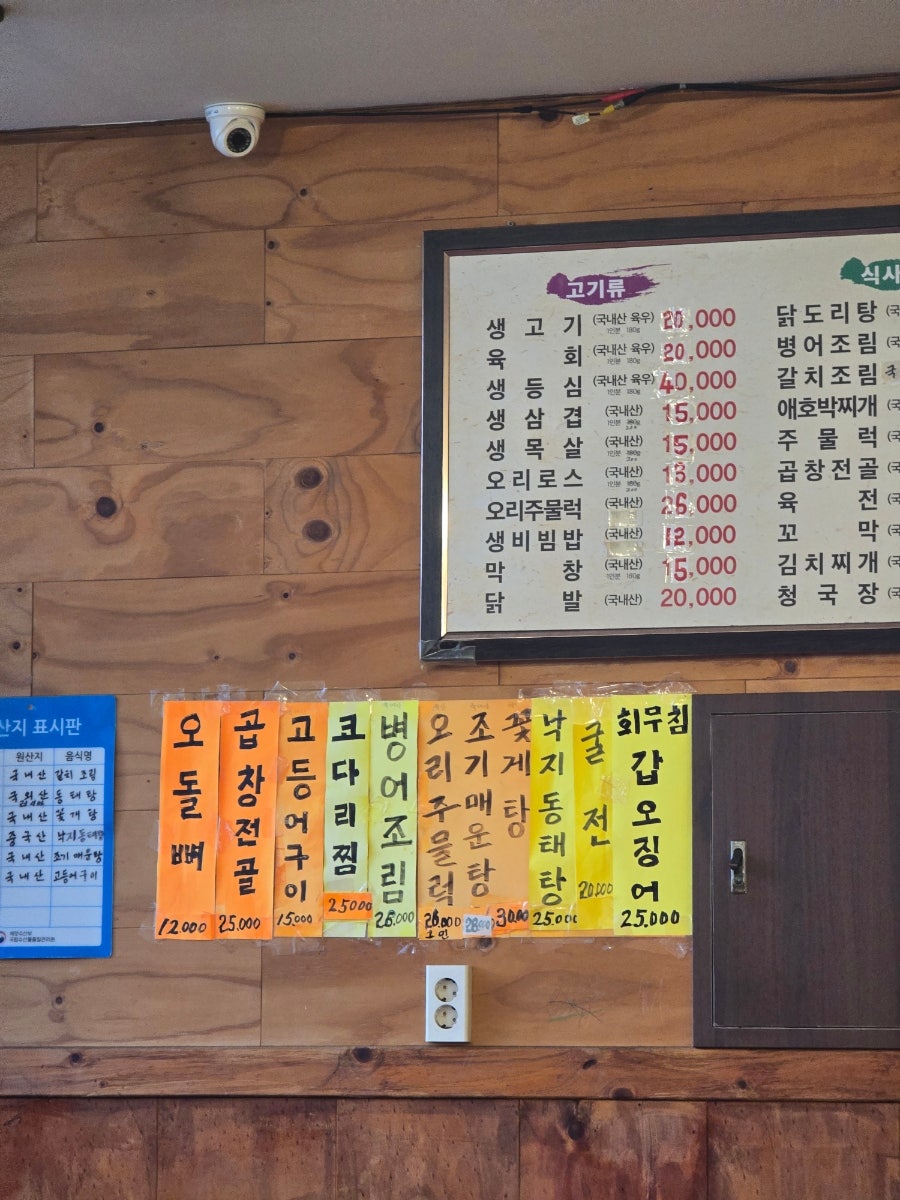 고기류
생고기 (국내산 육우) 1인분 180g 20,000
육회 (국내산 육우) 1인분 180g 20,000
생등심 (국내산 육우) 1인분 180g 40,000
생삼겹 (국내산) 1인분 15,000
생목살 (국내산) 1인분 15,000
오리로스 (국내산) 1인분
오리주물럭 (국내산) 26,000
생비빔밥 (국내산) 12,000
막창 (국내산) 1인분 180g 15,000
닭발 (국내산) 20,000
식사
닭도리탕
병어조림
갈치조림
애호박찌개
주물럭
곱창전골
육전
꼬막
김치찌개
청국장
산지 표시판
원산지 음식명
국내산 갈치조림
국외산 동태탕
국내산 꽃게탕
중국산 낙지동태탕
국내산 조기매운탕
국내산 고등어구이
오돌뼈 12.000
곱창전골 25.000
고등어구이 15.000
코다리찜 25000
병어조림
오리주물럭
조기매운탕
꽃게탕 30.000
낙지동태탕 25.000
굴전 20.000
회무침
갑오징어 25.000